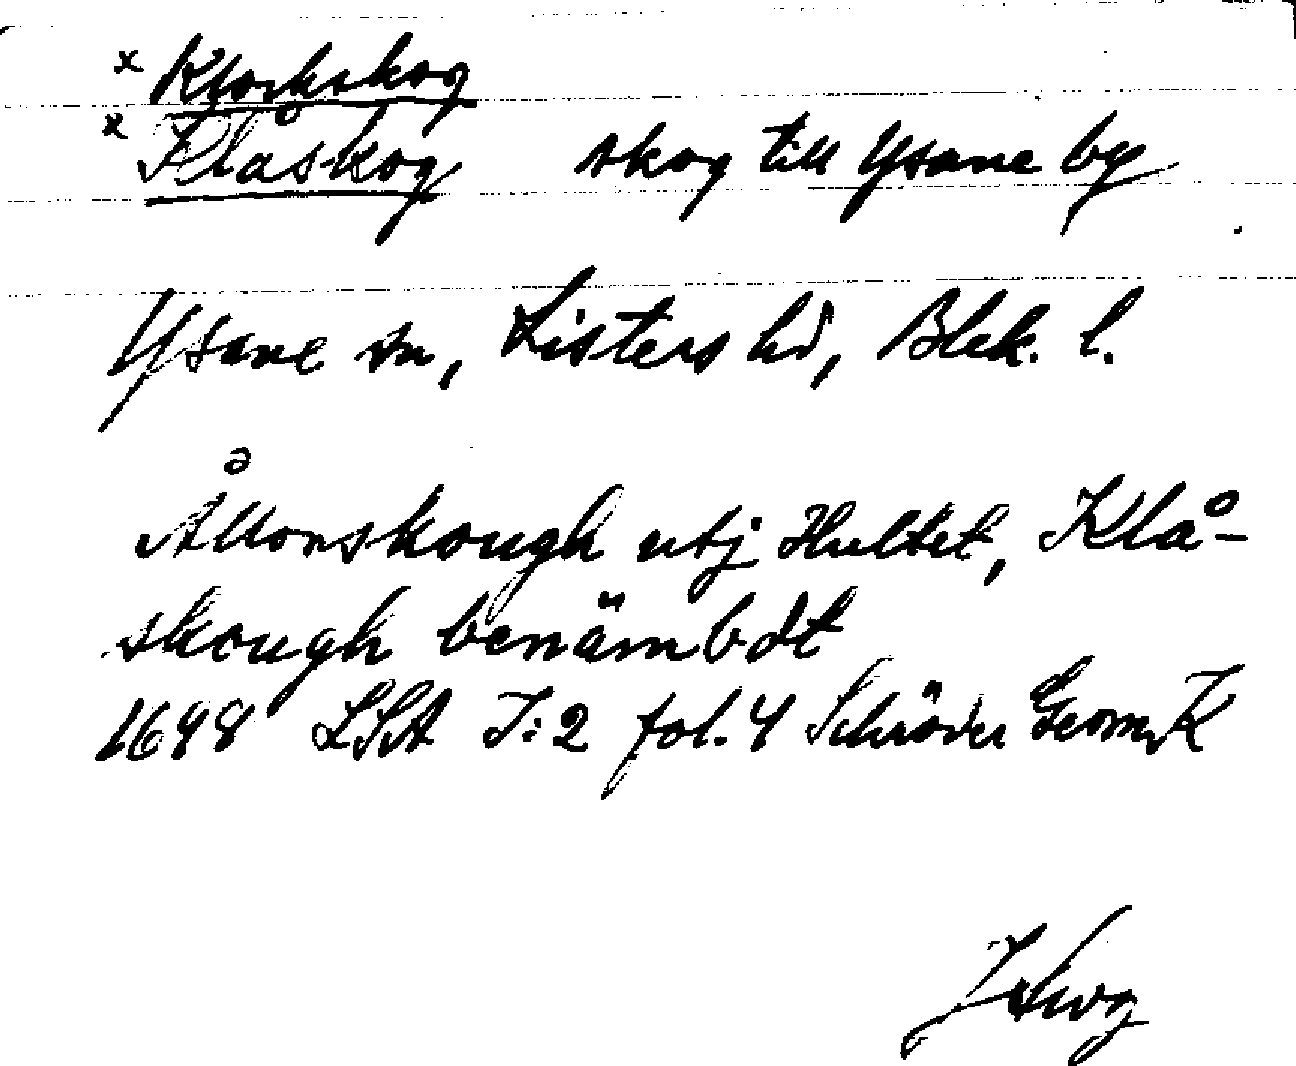 x Klockskog
x Klåskog skog till Ysane by
Ysane sn, Listers hd, Blek. l.
Ållonskough utj Hultet, Klå-
skough benämbdt
1698 LSA I:2 fol. 4 Schröder Geom. K